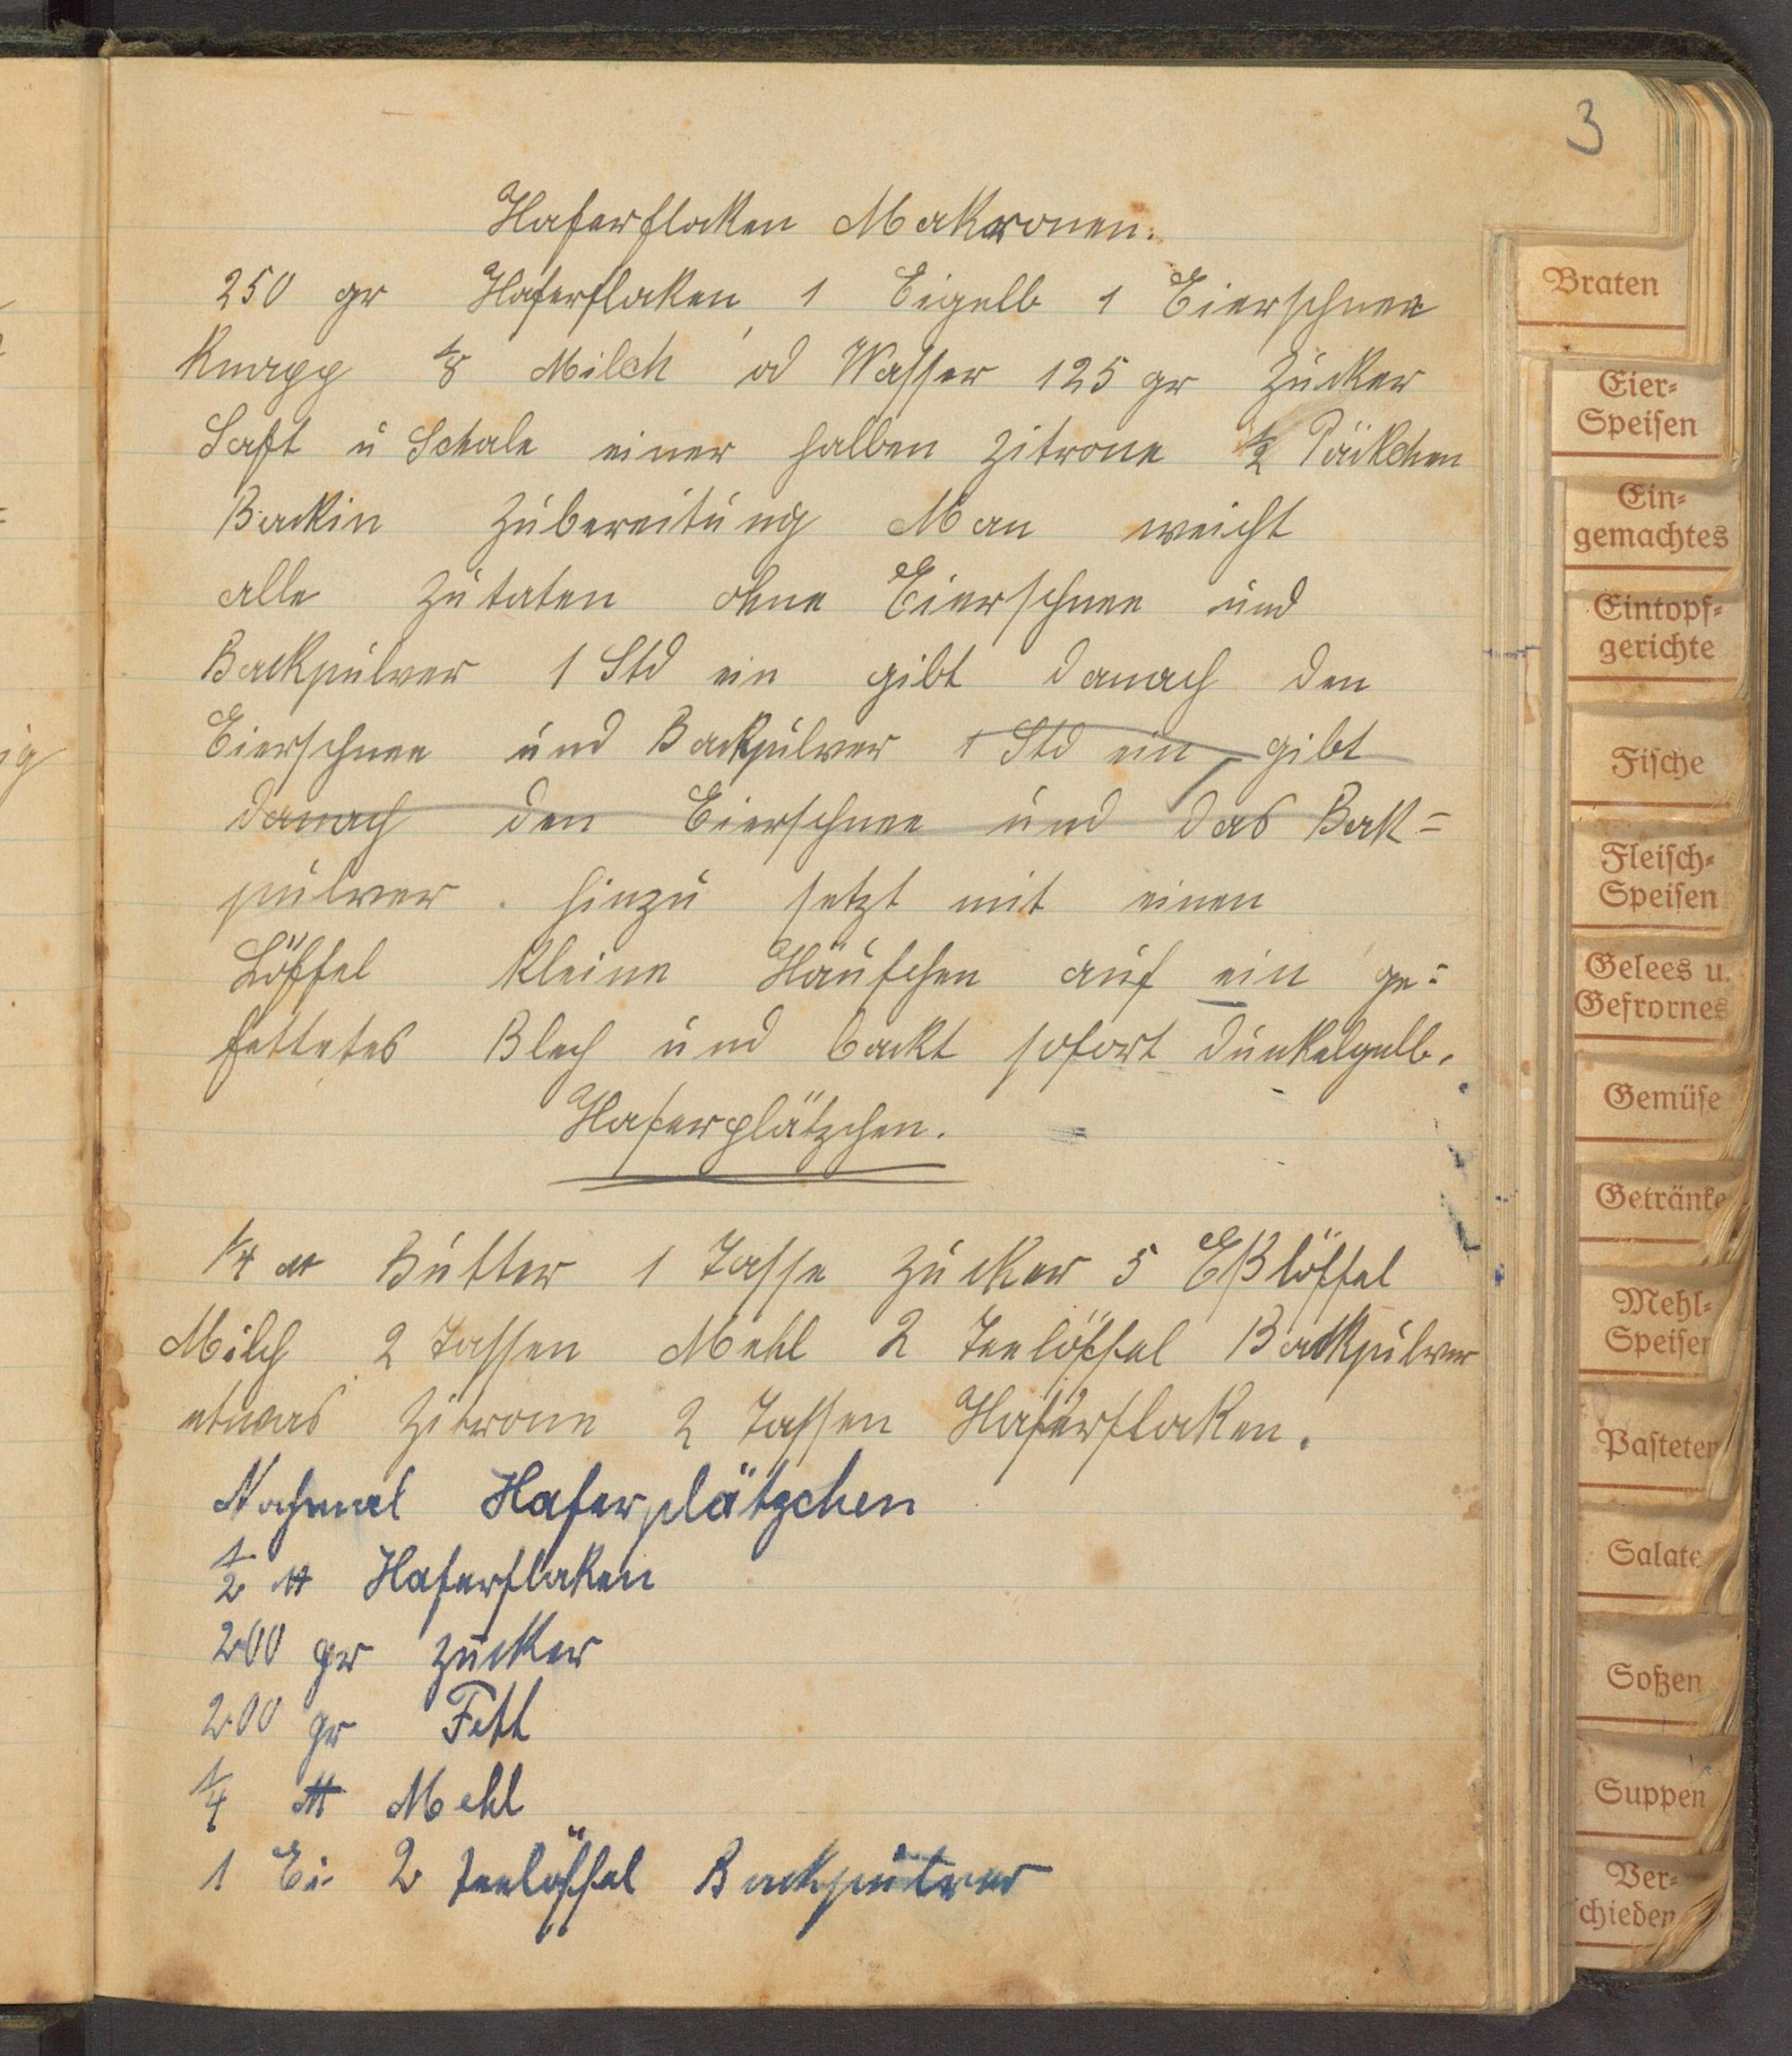 3
Haferfloken Makronen.
250 gr Haferflaken 1 Eigelb 1 Eierschnee
Knapp 1/8 Milch od Wasser 125 gr Zucker
Saft u Schale einer halben Zitrone 1/2 Päckchen
Backin Zubereitung Man weicht
alle Zutaten ohne Eierschnee und
Backpulver 1 Std ein gibt danach den
Eierschnee und Backpulver 1 Std ein gibt
danach den Eierschnee und das Bak=
pulver. hinzu setzt mit einen
Löffel kleine Häufchen auf ein ge=
fettetes Blech und backt sofort dunkelgelb.
Haferplätzchen.
1/4 ℔ Butter 1 Tasse Zucker 5 Eßlöffel
Milch 2 Tassen Mehl 2 Teelöffel Backpulver
etwas Zitrone 2 Tassen Haferflaken.
Nochmal Haferplätzchen
1/2 ℔ Haferflaken
200 gr Zucker
200 gr Fett
1/4 ℔ Mehl
1 Ei 2 Teelöffel Backpulver
Braten
Eier=
Speisen
Ein=
gemachtes
Eintopf=
gerichte
Fische
Fleisch=
Speisen
Gelees u.
Gefrornes
Gemüse
Getränke
Mehl=
Speisen
Pasteten
Salate
Soßen
Suppen
Ver=
schieden
ig